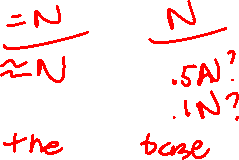 =N N
≈N .5N?
.1N?
the base